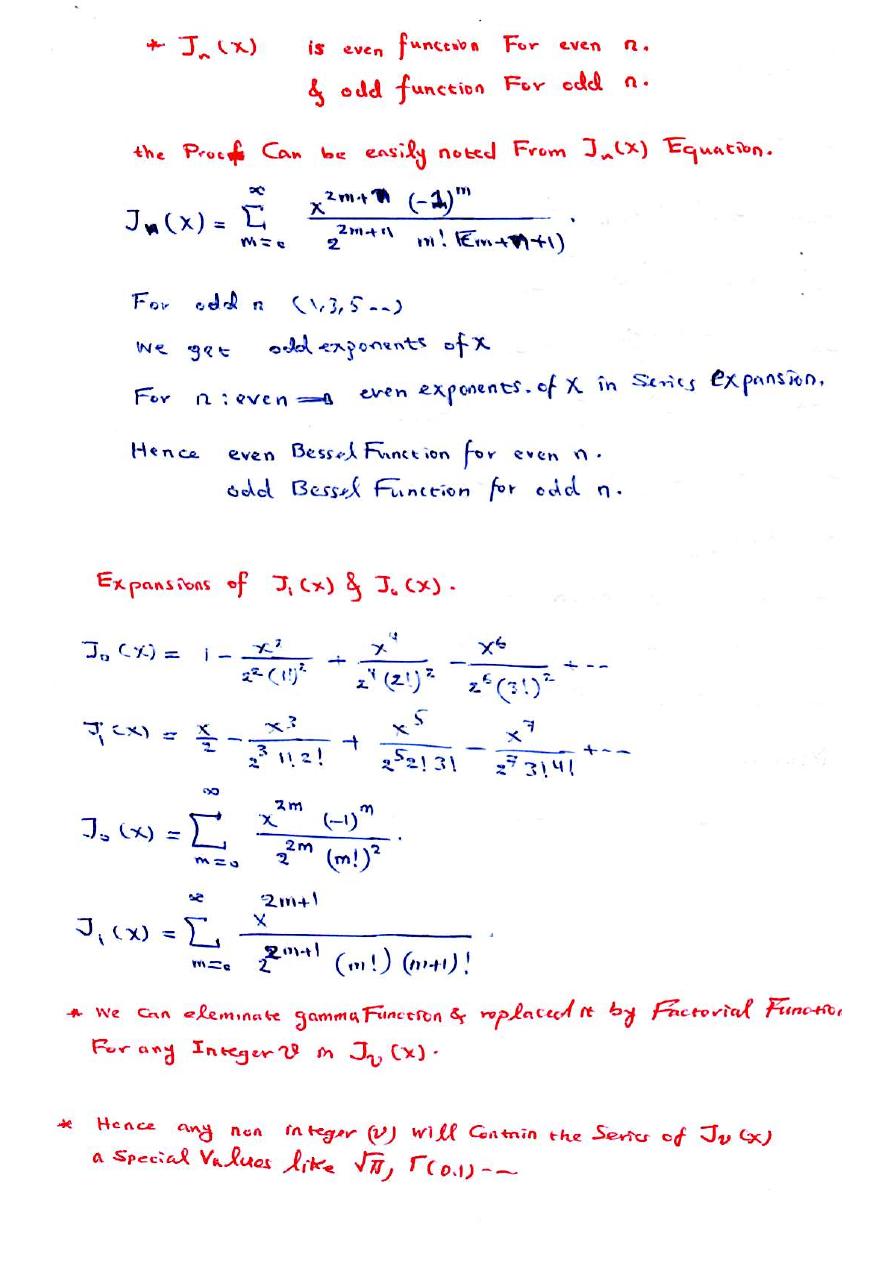 * Jₙ(x) is even function For even n.
& odd function For odd n.
the Proof Can be easily noted From Jₙ(x) Equation.
Jₙ(x) = Σ_{m=0}^{∞} x^{2m+n} (-1)^m / 2^{2m+n} m! Γ(m+n+1)
For odd n (1,3,5 --)
we get odd exponents of x
For n : even ⇒ even exponents. of X in Series Expansion.
Hence even Bessel Function for even n.
odd Bessel Function for odd n.
Expansions of J₁(x) & J₀(x).
J₀(x) = 1 - x²/2²(1!)² + x⁴/2⁴(2!)² - x⁶/2⁶(3!)² + --
J₁(x) = x/2 - x³/2³ 1! 2! + x⁵/2⁵ 2! 3! - x⁷/2⁷ 3! 4! + --
J₀(x) = Σ_{m=0}^{∞} x^{2m} (-1)^m / 2^{2m} (m!)² .
J₁(x) = Σ_{m=0}^{∞} x^{2m+1} / 2^{2m+1} (m!) (m+1)! .
* We Can eleminate gamma Function & replaced it by Factorial Function
For any Integer ν in J_ν(x).
* Hence any non integer (ν) will Contain the Series of J_ν(x)
a Special Values like √π, Γ(0.1) --